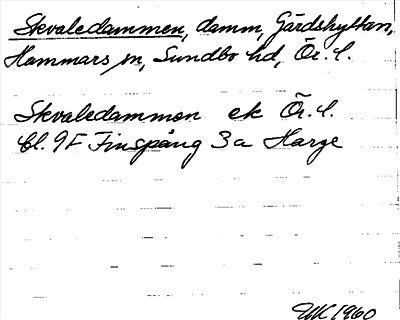 Skvaledammen, damm, Gårdshyttan,
Hammars sn, Sundbo hd, Ör. l.
Skvaledammen ek Ör. l.
bl. 9F Finspång 3a Harge
1960